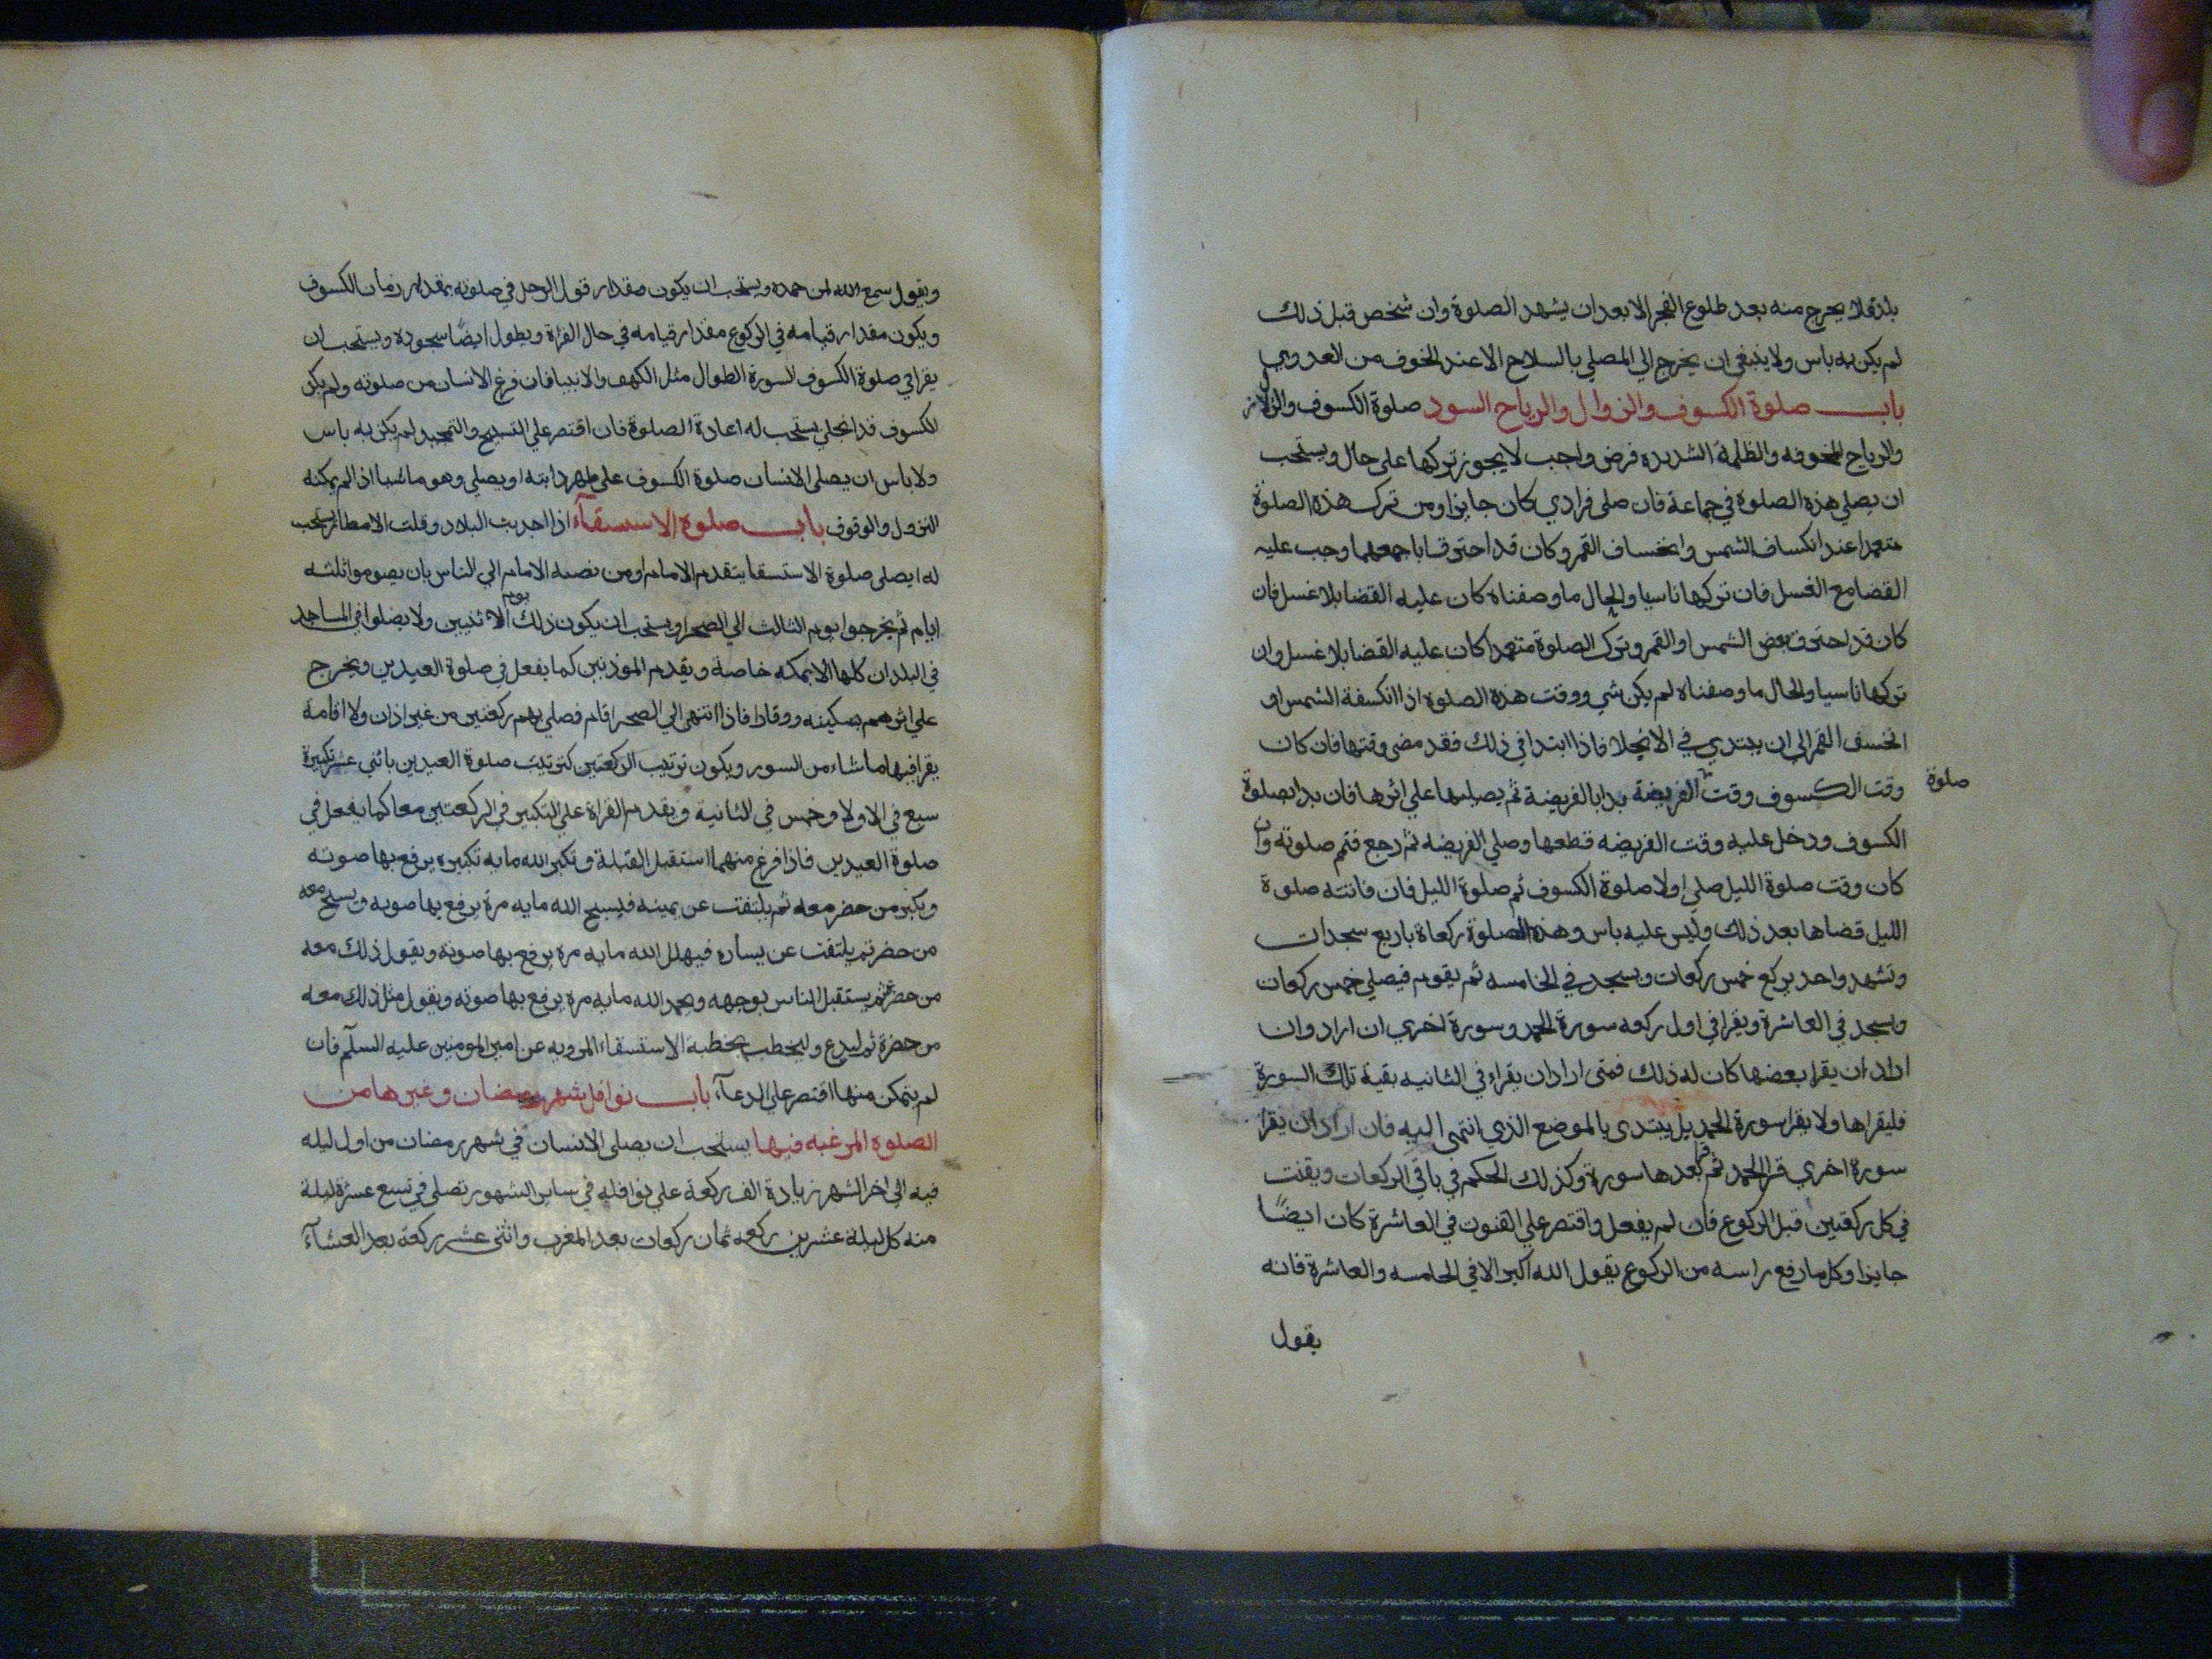 بلدة فلا يخرج منه بعد طلوع الفجر الا بعد ان يشهد الصلوة وان شخص قبل ذلك
لم يكن به باس ولا ينبغي ان يخرج الي المصلي بالسلاح الا عند الخوف من العدو
باب صلوة الكسوف والزوال والرياح السود صلوة الكسوف والزلازل
والرياح المخوفه والظلمة الشديده فرض واجب لا يجوز تركها علي حال ويستحب
ان يصلي هذه الصلوة في جماعة فان صلي فرادي كان جايزا ومن ترك هذه الصلوة
متعمدا عند انكساف الشمس وانخساف القمر وكان قد احترقا باجمعهما وجب عليه
القضا مع الغسل فان تركها ناسيا والحال ما وصفناه كان عليه القضا بلا غسل فان
كان قد احترق بعض الشمس او القمر وترك الصلوة متعمدا كان عليه القضا بلا غسل وان
تركها ناسيا والحال ما وصفناه لم يكن شي ووقت هذه الصلوه اذا انكسفة الشمس او
انخسف القمر الي ان يبتدي في الانجلا فاذا ابتدا في ذلك فقد مضي وقتها فان كان
وقت الكسوف وقت الفريضة بدا بالفريضة ثم يصليها علي اثرها فان بدا بصلوة
صلوة
الكسوف ودخل عليه وقت الفريضه قطعها وصلي الفريضه ثم رجع فتمم صلوته وان
كان وقت صلوة الليل صلي اولا صلوة الكسوف ثم صلوة الليل فان فاتته صلوة
الليل قضاها بعد ذلك وليس عليه باس وهذه الصلوة ركعاة باربع سجدات
وتشهد واحد يركع خمس ركعات ويسجد في الخامسه ثم يقوم فيصلي خمس ركعات
ويسجد في العاشرة ويقرا في اول ركعه سورة الحمد وسورة اخري ان اراد وان
اراد ان يقرا بعضها كان له ذلك فمتي اراد ان يقراء في الثانيه بقية تلك السورة
فليقراها ولا يقرا سورة الحمد بل يبتدي بالموضع الذي انتهي اليه فان اراد ان يقرا
سورة اخري قرا الحمد ثم بعدها سورة وكذلك الحكم في باقي الركعات ويقنت
في كل ركعتين قبل الركوع فان لم يفعل واقتصر علي القنوت في العاشرة كان ايضًا
جايزا وكل ما رفع راسه من الركوع يقول الله اكبر الا في الخامسه والعاشرة فانه
يقول
ويقول سمع الله لمن حمده ويستحب ان يكون مقدار قول الرجل في صلوته بمقدار زمان الكسوف
ويكون مقدار قيامه في الركوع مقدار قيامه في حال القراة ويطول ايضًا سجوده ويستحب ان
يقرا في صلوة الكسوف السورة الطوال مثل الكهف والانبيا فان فرغ الانسان من صلوته ولم يكن
الكسوف قد انجلي يستحب له اعادة الصلوة فان اقتصر علي التسبيح والتمجيد لم يكن به باس
ولا باس ان يصلي الانسان صلوة الكسوف علي ظهر دابته او يصلي وهو ماشيا اذا لم يمكنه
النزول والوقوف باب صلوة الاستسقآء اذا اجدبت البلاد وقلت الامطار يستحب
له ايصلي صلوة الاستسقا يتقدم الامام او من نصبه الامام الي الناس بان يصوموا ثلثه
ايام ثم يخرجوا يوم الثالث الي الصحرا ويستحب ان يكون ذلك يوم الاثنيين ولا يصلوا في المساجد
في البلدان كلها الا بمكه خاصة ويقدم الموذنين كما يفعل في صلوة العيدين ويخرج
علي اثرهم بسكينه ووقار فاذا انتهي الي الصحرا قام فصلي بهم ركعتين من غير اذان ولا اقامه
يقرا فيهما ما شاء من السور ويكون ترتيب الركعتين كترتيب صلوة العيدين باثني عشر تكبيرة
سبع في الاولا وخمس في الثانية ويقدم القراة علي التكبير في الركعتين معا كما يفعل في
صلوة العيدين فاذا فرغ منهما استقبل القبلة وتكبر الله مايه تكبيره يرفع بها صوته
ويكبر من حضر معه ثم يلتفت عن يمينه فيسبح الله مايه مرة يرفع بها صوته ويسبح معه
من حضر ثم يلتفت عن يساره فيهلل الله مايه مره يرفع بها صوته ويقول ذلك معه
من حضر ثم يستقبل الناس بوجهه ويحمد الله مايه مره يرفع بها صوته ويقول مثل ذلك معه
من حضره ثم ليدع وليخطب بخطبة الاستسقاء المرويه عن امير المومنين عليه السلآم فان
لم يتمكن منها اقتصر علي الدعآء باب نوافل شهر رمضان وغيرها من
الصلوه المرغبه فيها يستحب ان يصلي الانسان في شهر رمضان من اول ليله
فيه الي اخر الشهر زيادة الف ركعة علي نوافله في ساير الشهور تصلي في تسع عشرة ليلة
منه كل ليلة عشرين ركعه ثمان ركعات بعد المغرب واثني عشر ركعة بعد العشآء